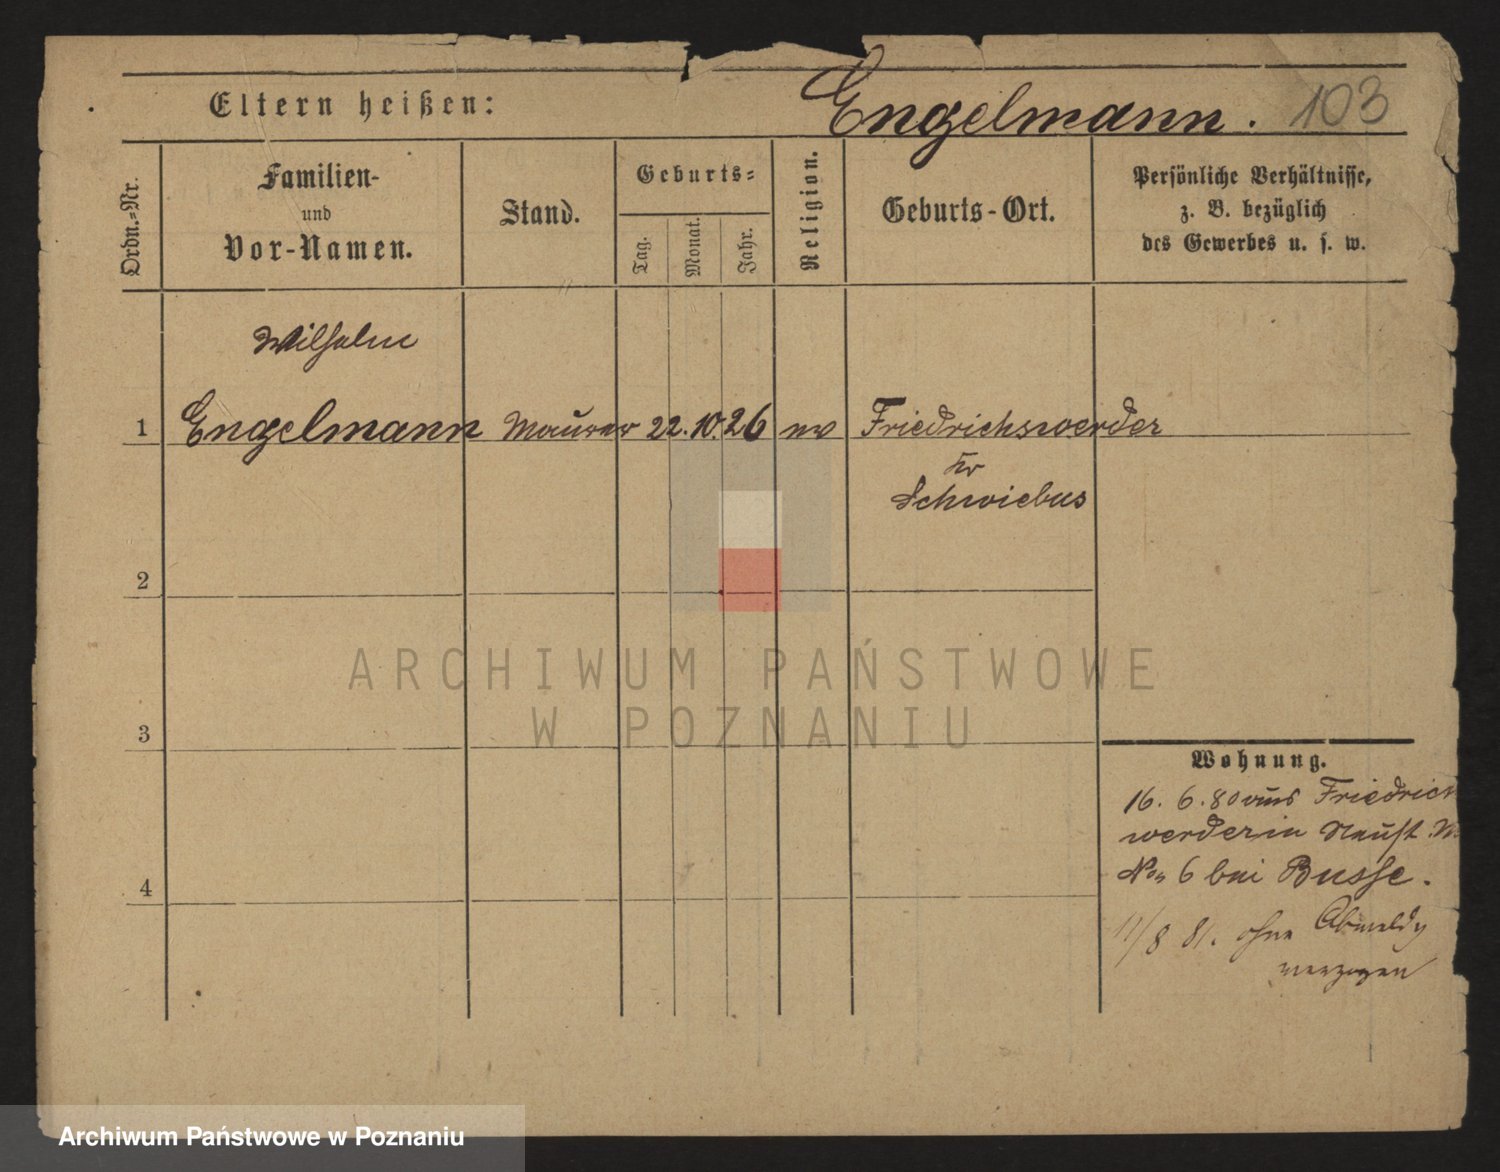 Eltern heißen: Engelmann. 103
Ordn.=Nr.
Familien-
und
Vor-Namen.
Stand.
Geburts=
Tag.
Monat.
Jahr.
Religion.
Geburts-Ort.
Persönliche Verhältnisse,
z. B. bezüglich
des Gewerbes u. s. w.
Wilhelm
1 Engelmann Maurer 22. 10. 26 ev Friedrichswerder
Kr
Schwiebus
2
3
4
Wohnung.
16. 6. 80 aus Friedrichs
werder in Neust.
No 6 bei Busse.
11/8 81. ohne Abmeldg
verzogen
ARCHIWUM PAŃSTWOWE
W POZNANIU
Archiwum Państwowe w Poznaniu